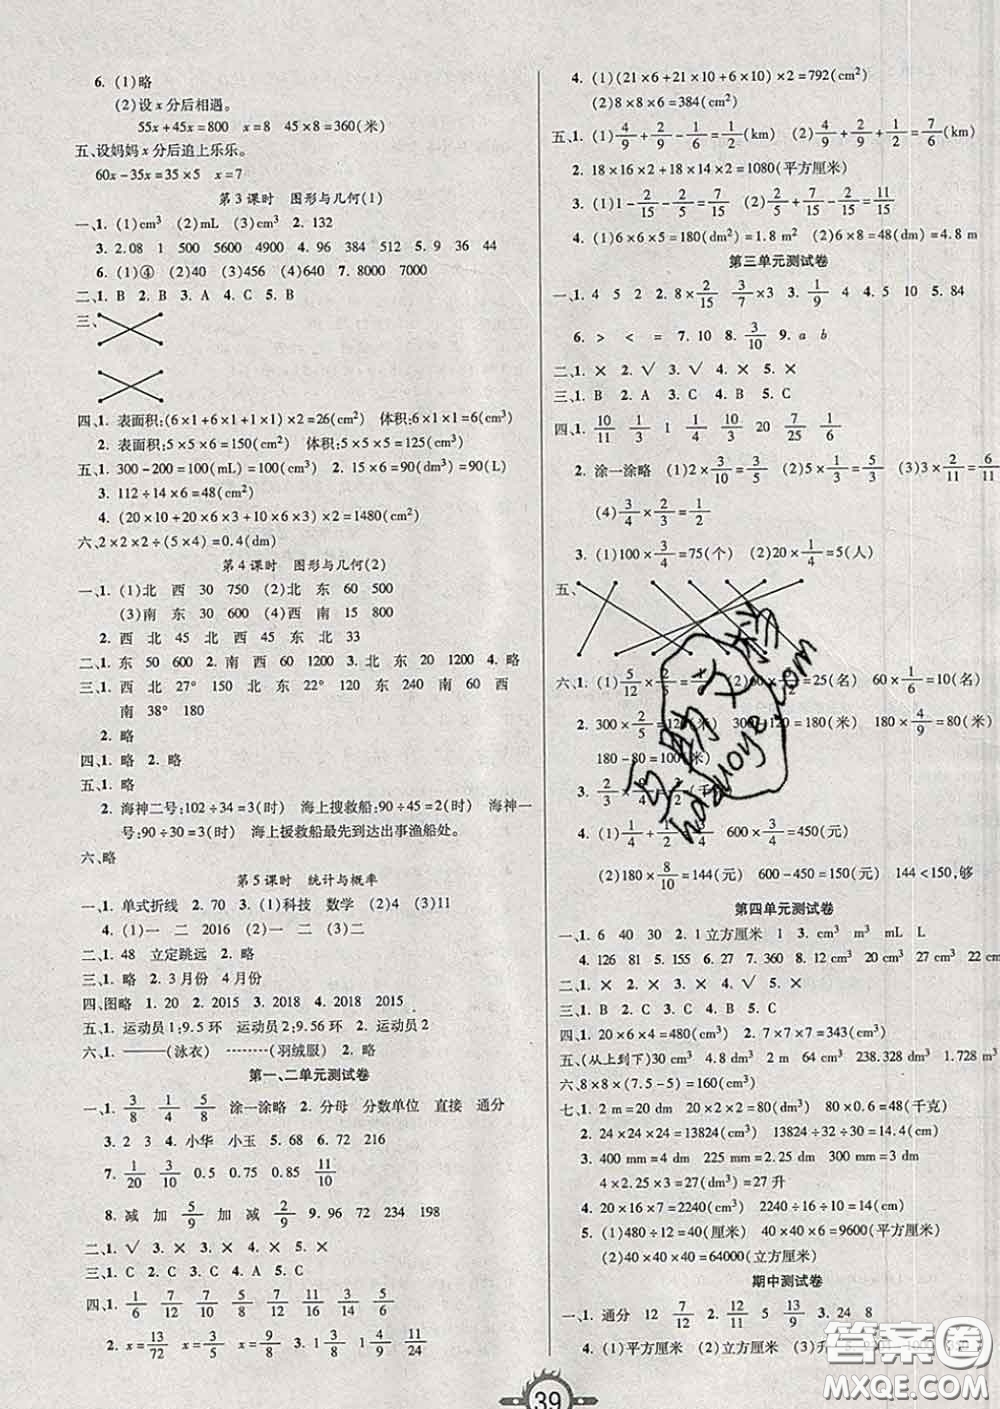 6. (1)略
(2)设x分后相遇。
55x+45x=800 x=8 45×8=360(米)
五、设妈妈x分后追上乐乐。
60x-35x=35×5 x=7
第3课时 图形与几何(1)
一、1. (1)cm³ (2)mL (3)cm³ 2. 132
3. 2.08 1 500 5600 4900 4. 96 384 512 5. 9 36 44
6. (1)④ (2)40 (3)456 (4)64 7. 8000 7000
二、1. B 2. B 3. A 4. C 5. C
三、
四、1. 表面积:(6×1+6×1+1×1)×2=26(cm²) 体积:6×1×1=6(cm³)
2. 表面积:5×5×6=150(cm²) 体积:5×5×5=125(cm³)
五、1. 300-200=100(mL)=100(cm³) 2. 15×6=90(dm³)=90(L)
3. 112÷14×6=48(cm²)
4. (20×10+20×6×3+10×6×3)×2=1480(cm²)
六、2×2×2÷(5×4)=0.4(dm)
第4课时 图形与几何(2)
一、1. (1)北 西 30 750 (2)北 东 30 600
(3)南 东 30 600 (4)西 南 15 800
2. 西 北 45 北 西 45 西 南 50 东 北 33
二、1. 东 50 600 2. 南 西 60 1200 3. 北 东 20 1200 4. 略
三、1. 西 北 27° 150 北 东 32° 210 东 120 东 240 南 60 西
南 38° 180
2. 略
四、1. 略 2. 略
五、1. 略
2. 海神二号:102÷34=3(时) 海上搜救船:90÷45=2(时) 海神一
号:90÷30=3(时) 海上援救船最先到达出事渔船处。
六、略
第5课时 统计与概率
一、1. 单式折线 2. 70 3. (1)科技 数学 (2)4 (3)11
4. (1)一 二 2016 (2)一 二 (3)二
二、1. 48 立定跳远 2. 略
三、1. 略 2. 略 3. 3月份 4月份
四、图略 1. 20 2. 2015 3. 2018 4. 2018 2015
五、1. 运动员1:9.5环 运动员2:9.56环 2. 运动员2
六、1. ——(泳衣) -------(羽绒服) 2. 略
第一、二单元测试卷
一、1. 3/8 1/4 5/8 涂一涂略 2. 分母 分数单位 直接 通分
3. 2 3 4. 小华 小玉 5. 68 6. 72 216
7. 1/20 3/10 0.5 0.75 0.85 11/10
8. 减 加 5/9 加 减 2/9 9. 96 72 234 198
二、1. √ 2. × 3. × 4. × 5. ×
三、1. C 2. C 3. C 4. A 5. B
四、1. 1/6 7/12 7/10 5/8 7/12 3/8 11/24
2. x=13/72 x=3/5 x=9/8 3. 1 3/8 1 3/8 2
39
4. (1)(21×6+21×10+6×10)×2=792(cm²)
(2)8×8×6=384(cm²)
五、1. (1)4/9+2/9-1/6=1/2(km) (2)4/9+2/9+1/2=7/6(km)
2. 18×16×2+18×14×2=1080(平方厘米)
3. (1)1-2/15-2/5=7/15 (2)7/15+2/5-2/15=11/15
4. (1)6×6×5=180(dm²)=1.8 m² (2)6×8=48(dm)=4.8 m
第三单元测试卷
一、1. 4 5 2 2. 8×2/15 3/7×3 3. 1/9 4 4. 5 10 5. 84
6. > < = 7. 10 8. 3/10 9. a b
二、1. × 2. √ 3. √ 4. × 5. ×
三、1. B 2. A 3. C 4. B 5. C
四、1. 10/11 1/3 1 4/3 3/10 20 7/25 1/6
2. 涂一涂略 (1)2×3/10=3/5 (2)5×1/3=5/3 (3)3×2/11=6/11
(4)3/4×2/3=1/2
3. (1)100×3/4=75(个) (2)20×1/4=5(人)
五、
六、1. (1)5/12×2/5=1/6 (2)60×=25(名) 60×1/6=10(名)
2. 300×2/5= 300=180(米) 180×4/9=80(米)
180-80=100(米)
3. 2/3×
4. (1)1/4+1/2=3/4 600×3/4=450(元)
(2)180×8/10=144(元) 600-450=150(元) 144<150,够
第四单元测试卷
一、1. 6 40 30 2. 1立方厘米 1 3. cm³ m³ mL L
4. 126 81 5. 155 6. 27 7. 360 8. 12 cm³ 20 cm³ 27 cm³ 22 cm
二、1. × 2. × 3. × 4. √ 5. ×
三、1. B 2. C 3. C 4. B 5. C
四、1. 20×6×4=480(cm³) 2. 7×7×7=343(cm³)
五、(从上到下)30 cm³ 4.8 dm³ 2 m 64 cm³ 238.328 dm³ 1.728 m³
六、8×8×(7.5-5)=160(cm³)
七、1. 2 m=20 dm 20×2×2=80(dm³) 80×0.6=48(千克)
2. 24×24×24=13824(cm³) 13824÷32÷30=14.4(cm)
3. 400 mm=4 dm 225 mm=2.25 dm 300 mm=3 dm
4×2.25×3=27(dm³)=27升
4. 20×16×7=2240(cm³) 2240÷16÷10=14(cm)
5. (1)480÷12=40(厘米) 40×40×6=9600(平方厘米)
(2)40×40×40=64000(立方厘米)
期中测试卷
一、1. 通分 12 7/12 2. 11/12 5 13/9 3. 24 8
4. (1)平方厘米 (2)立方厘米 (3)升
答案圈
MXQE.COM